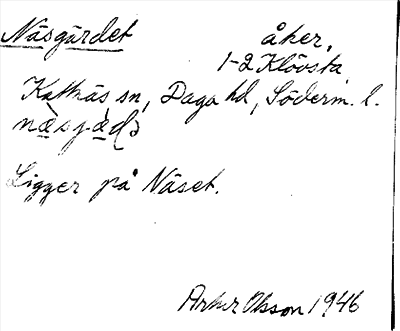 Näsgärdet åker,
1-2 Klövsta
Kattnäs sn, Daga hd, Söderm. l.
Ligger på Näset.
Arthur Olsson 1946